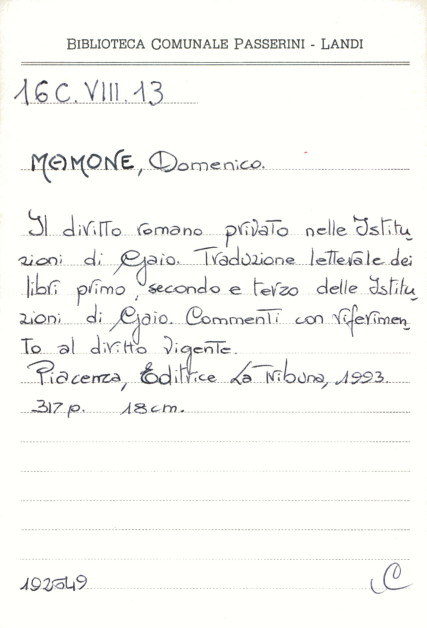 BIBLIOTECA COMUNALE PASSERINI - LANDI
16C.VIII.13
MAMONE, Domenico.
Il diritto romano privato nelle Istitu_
zioni di Gaio. Traduzione letterale dei
libri primo, secondo e terzo delle Istitu_
zioni di Gaio. Commenti con riferimen_
to al diritto vigente.
Piacenza, Editrice La Tribuna, 1993.
317 p. 18 cm.
192549
C